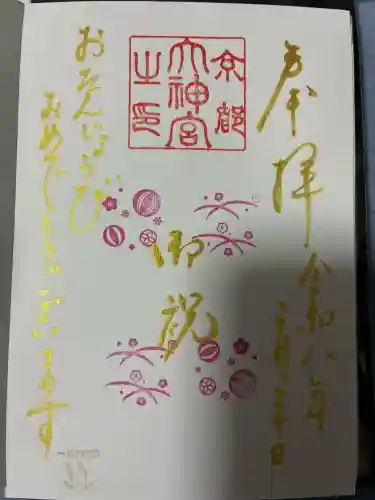 奉拝
令和六年
二月二十日
京都
大神宮
之印
御祝
おたんじょうび
おめでとうございます